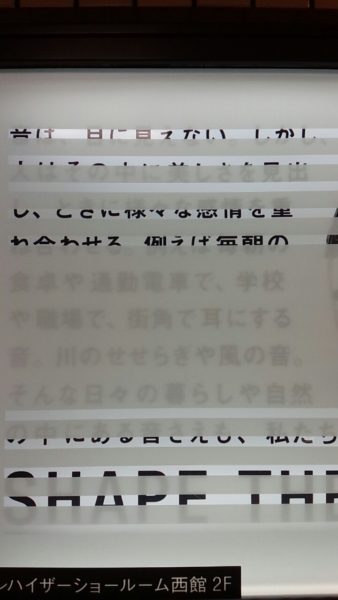 音は、目に見えない。しかし、
人はその中に美しさを見出
し、ときに様々な感情を重
ね合わせる。例えば毎朝の
食卓や通勤電車で、学校
や職場で、街角で耳にする
音。川のせせらぎや風の音。
そんな日々の暮らしや自然
の中にある音さえも、私たち
SHAPE THE
ンハイザーショールーム西館 2F